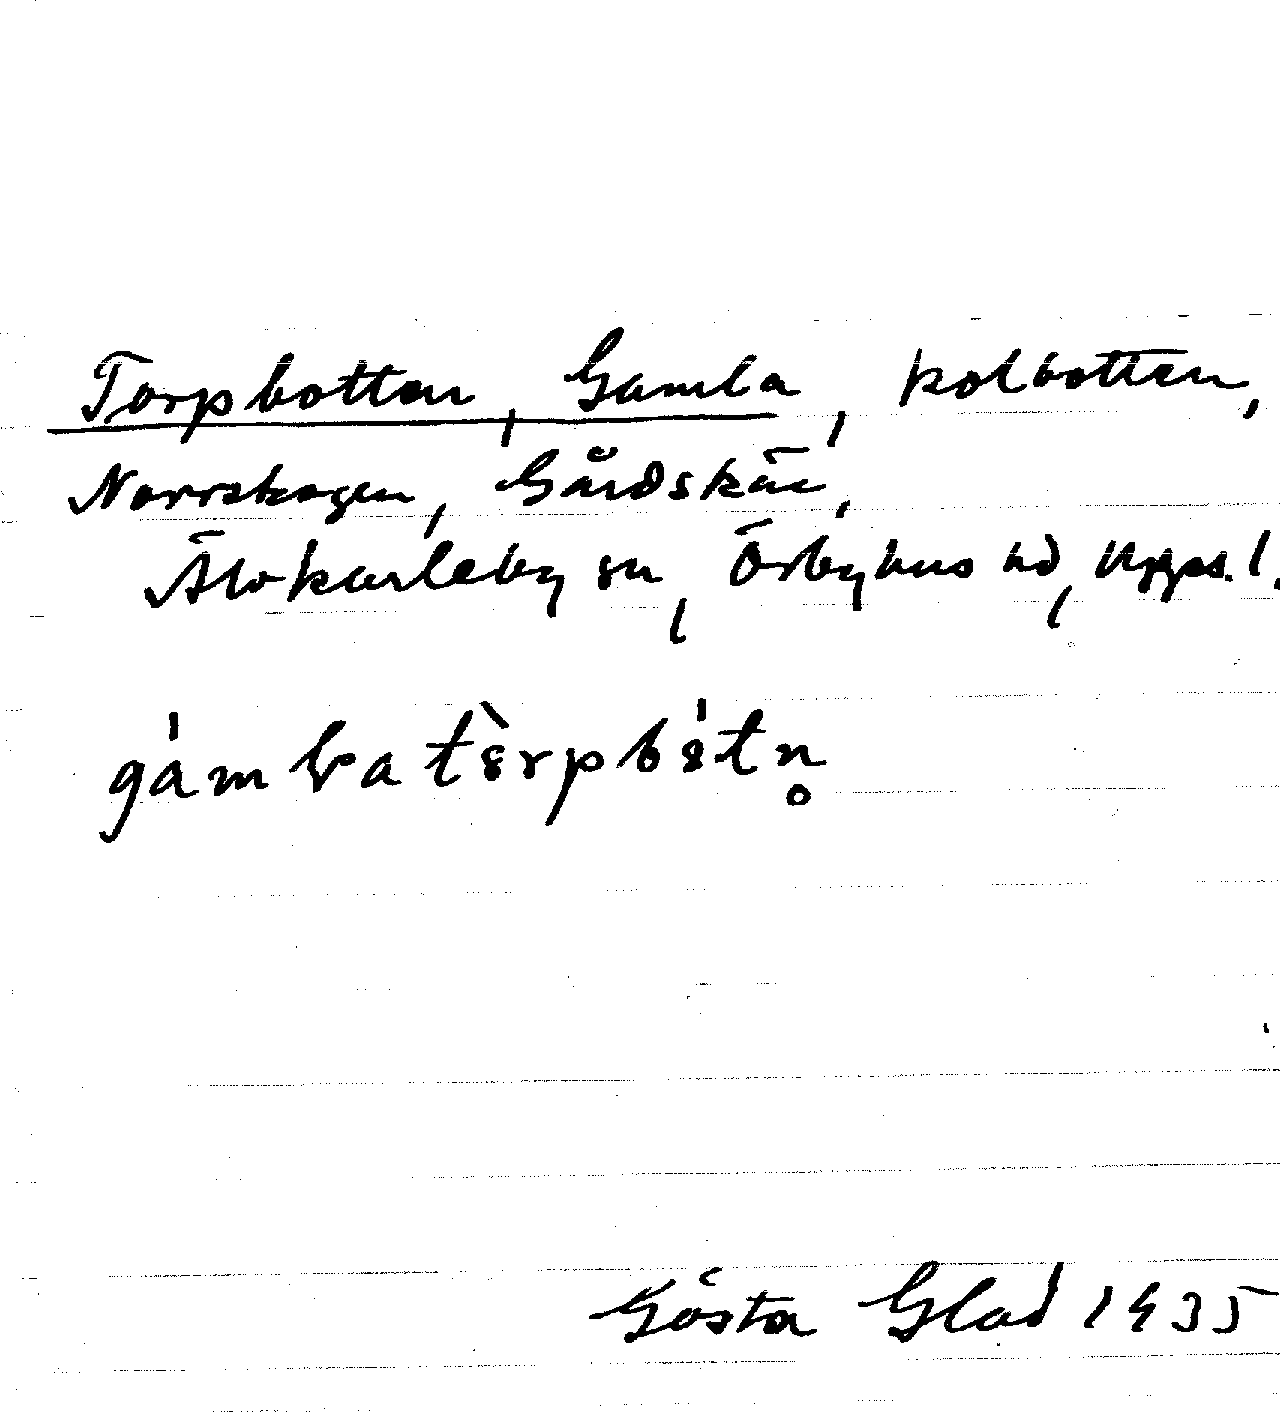 Torpbotten, Gamla, kolbotten,
Norrskogen, Gårdskär,
Älvkarleby sn, Örbyhus hd, Upps. l.
gámbatòrpbótn̥
Gösta Glad 1935